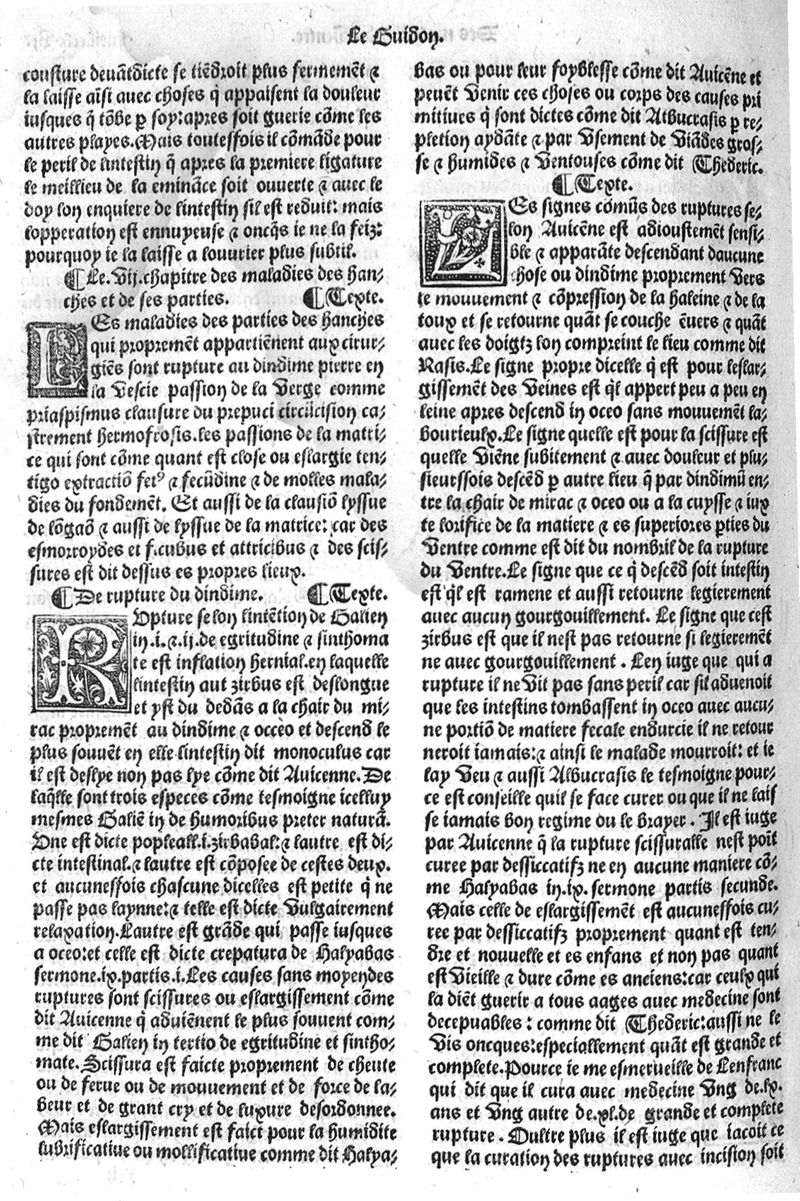 Le Guidon.
cousture deuãtdicte se tiẽdroit plus fermemẽt ⁊
la laisse aĩsi auec choses q̃ appaisent la douleur
iusques q̃ tõbe ꝑ soy: apres soit guerie cõme les
autres playes. Mais toutesfois il cõmãde pour
le peril de lintestin q̃ apres la premiere ligature
le meillieu de la eminãce soit ouuerte ⁊ auec le
doy lon enquiere de lintestin sil est reduit: mais
lopperation est ennuyeuse ⁊ oncq̃s ie ne la feiz:
pourquoy ie la laisse a louurier plus subtil.
¶ Le. vij. chapitre des maladies des han⸗
ches et de ses parties. ¶ Texte.
LEs maladies des parties des hanches
qui propremẽt appartiẽnent aux cirur⸗
giẽs sont rupture au dindime pierre en
la vescie passion de la verge comme
priaspismus clausure du prepuci circũcision ca⸗
strement hermofrosis. les passions de la matri⸗
ce qui sont cõme quant est close ou eslargie ten⸗
tigo extractiõ fetꝰ ⁊ fecũdine ⁊ de molles mala⸗
dies du fondemẽt. Et aussi de la clausiõ lyssue
de lõgaõ ⁊ aussi de lyssue de la matrice: car des
esmorroydes et ficubus et attricibus ⁊ des scis⸗
sures est dit dessus es propres lieux.
¶ De rupture du dindime. ¶ Texte.
RVpture selon lintẽtion de Galien
in .i. ⁊ .ij. de egritudine ⁊ sinthoma
te est inflation hernial. en laquelle
lintestin aut zirbus est deslongue
et yst du dedãs a la chair du mi⸗
rac propremẽt au dindime ⁊ occèo et descend le
plus souuẽt en elle lintestin dit monoculus car
il est deslye non pas lye cõme dit Auicenne. De
laq̃lle sont trois especes cõme tesmoigne icelluy
mesmes Galiẽ in de humoribus preter naturã.
Vne est dicte popleall. i. zirbabal: ⁊ lautre est di⸗
cte intestinal. ⁊ lautre est cõposee de cestes deux.
et aucunesfois chascune dicelles est petite q̃ ne
passe pas laynne: ⁊ telle est dicte vulgairement
relaxation. Lautre est grãde qui passe iusques
a oceo: et celle est dicte crepatura de Halyabas
sermone. ix. partis .i. Les causes sans moyendes
ruptures sont scissures ou eslargissement cõme
dit Auicenne q̃ aduiẽnent le plus souuent com⸗
me dit Galien in tertio de egritudine et sintho⸗
mate. Scissura est faicte proprement de cheute
ou de ferue ou de mouuement et de force de la⸗
beur et de grant cry et de luxure desordonnee.
Mais eslargissement est faict pour la humidite
lubrificatiue ou mollificatiue comme dit Halya⸗
bas ou pour leur foyblesse cõme dit Auicẽne et
peuẽt venir ces choses ou corps des causes pri
mitiues q̃ sont dictes cõme dit Albucrasis ꝑ re⸗
pletion aydãte ⁊ par vsement de viãdes gros⸗
se ⁊ humides ⁊ ventouses cõme dit Thederic.
¶ Texte.
LEs signes cõmũs des ruptures se⸗
lon Auicẽne est adioustemẽt sensi⸗
ble ⁊ apparãte descendant daucune
chose ou dindime proprement vers
le mouuement ⁊ cõpression de la haleine ⁊ de la
toux et se retourne quãt se couche ẽuers ⁊ quãt
auec les doigtz lon compreint le lieu comme dit
Rasis. Le signe propre dicelle q̃ est pour leslar⸗
gissemẽt des veines est q̃l appert peu a peu en
leine apres descend in oceo sans mouuemẽt la⸗
bourieulx. Le signe quelle est pour la scissure est
quelle viẽne subitement ⁊ auec douleur et plu⸗
sieurssois descẽd ꝑ autre lieu q̃ par dindimũ en⸗
tre la chair de mirac ⁊ oceo ou a la cuysse ⁊ iux
te lorifice de la matiere ⁊ es superiores ꝑties du
ventre comme est dit du nombril de la rupture
du ventre. Le signe que ce q̃ descẽd soit intestin
est q̃l est ramene et aussi retourne legierement
auec aucun gourgouillement. Le signe que cest
zirbus est que il nest pas retourne si legieremẽt
ne auec gourgouillement. Len iuge que qui a
rupture il ne vit pas sans peril car sil aduenoit
que les intestins tombassent in oceo auec aucu⸗
ne portiõ de matiere fecale endurcie il ne retour
neroit iamais: ⁊ ainsi le malade mourroit: et ie
lay veu ⁊ aussi Albucrasis le tesmoigne pour⸗
ce est conseille quil se face curer ou que il ne lais
se iamais bon regime ou le brayer. Il est iuge
par Auicenne q̃ la rupture scissuralle nest poĩt
curee par desiccatifz ne en aucune maniere cõ⸗
me Halyabas in. ix. sermone partis secunde.
Mais celle de eslargissemẽt est aucunesfois cu⸗
ree par desiccatifz proprement quant est ten⸗
dre et nouuelle et es enfans et non pas quant
est vieille ⁊ dure cõme es anciens: car ceulx qui
la diẽt guerir a tous aages auec medecine sont
deceuables: comme dit Thederic: aussi ne le
vis oncques: especiallement quãt est grande et
complete. Pource ie me esmerueille de Lenfranc
qui dit que il cura auec medecine vng de. lx.
ans et vng autre de. xl. de grande et complete
rupture. Oultre plus il est iuge que iacoit ce
que la curation des ruptures auec incision soit